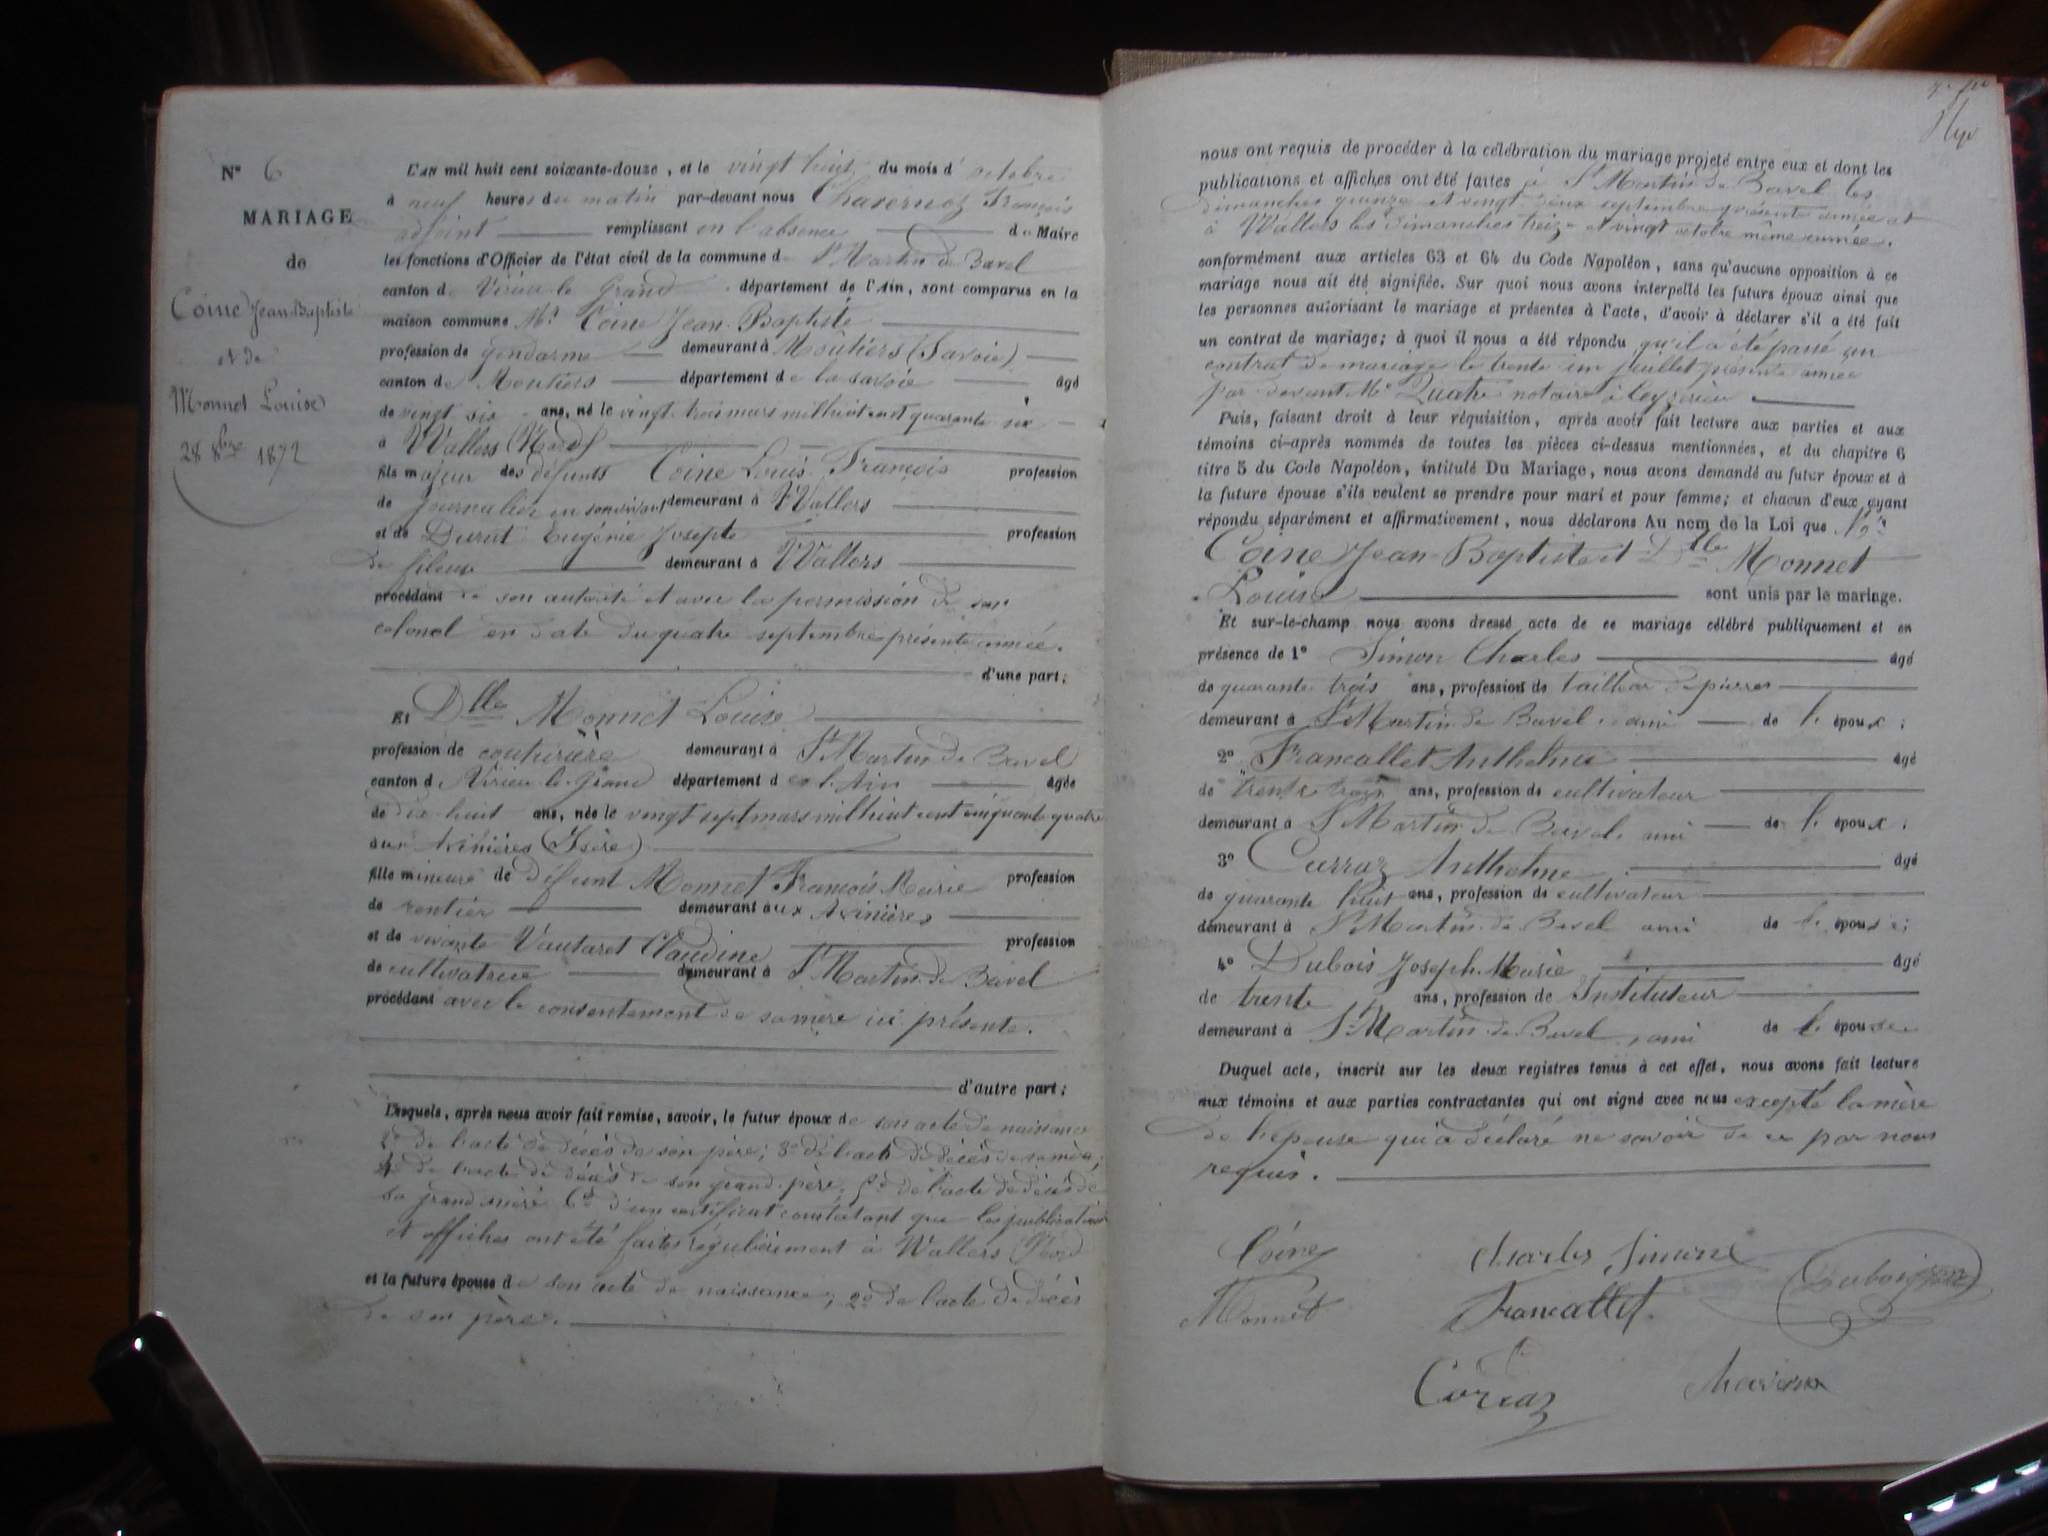 N° 6
MARIAGE
de
Coine Jean-Baptiste
et de
Monnet Louise
28 8bre 1872
L'AN mil huit cent soixante-douze, et le vingt huit du mois d'octobre
à neuf heures du matin par-devant nous Chavernoz François
adjoint remplissant en l'absence de Maire
les fonctions d'Officier de l'état civil de la commune de St Martin de Bavel
canton de Virieu le Grand département de l'Ain, sont comparus en la
maison commune Mr Coine Jean-Baptiste
profession de gendarme demeurant à Moutiers (Savoie)
canton de Moutiers département de la Savoie âgé
de vingt six ans, né le vingt trois mars mil huit cent quarante six
à Wallers (Nord)
fils majeur des défunts Coine Louis François profession
de journalier en son vivant demeurant à Wallers
et de Durut Eugénie Josephe profession
de fileuse demeurant à Wallers
procédant de son autorité et avec la permission de son
colonel en date du quatre septembre présente année.
d'une part;
Et Dlle Monnet Louise
profession de couturière demeurant à St Martin de Bavel
canton de Virieu-le-Grand département de l'Ain âgée
de dix-huit ans, née le vingt sept mars mil huit cent cinquante quatre
aux Avinières (Isère)
fille mineure de défunt Monnet François Marie profession
de rentier demeurant aux Avinières
et de vivante Vautaret Claudine profession
de cultivatrice demeurant à St Martin de Bavel
procédant avec le consentement de sa mère ici présente.
d'autre part;
Lesquels, après nous avoir fait remise, savoir, le futur époux de son acte de naissance
2° de l'acte de décès de son père; 3° de l'acte de décès de sa mère;
4° de l'acte de décès de son grand-père, 5° de l'acte de décès de
sa grand mère 6° d'un certificat constatant que les publications
et affiches ont été faites régulièrement à Wallers (Nord
et la future épouse de son acte de naissance; 2° de l'acte de décès
de son père.
nous ont requis de procéder à la célébration du mariage projeté entre eux et dont les
publications et affiches ont été faites à St Martin de Bavel les
dimanches quinze et vingt deux septembre présente année et
à Wallers les dimanches treize et vingt octobre même année.
conformément aux articles 63 et 64 du Code Napoléon, sans qu'aucune opposition à ce
mariage nous ait été signifiée. Sur quoi nous avons interpellé les futurs époux ainsi que
les personnes autorisant le mariage et présentes à l'acte, d'avoir à déclarer s'il a été fait
un contrat de mariage; à quoi il nous a été répondu qu'il a été passé un
contrat de mariage le trente un juillet présente année
par devant Me Quatre notaire à Ceyzérieu
Puis, faisant droit à leur réquisition, après avoir fait lecture aux parties et aux
témoins ci-après nommés de toutes les pièces ci-dessus mentionnées, et du chapitre 6
titre 5 du Code Napoléon, intitulé Du Mariage, nous avons demandé au futur époux et à
la future épouse s'ils veulent se prendre pour mari et pour femme; et chacun d'eux ayant
répondu séparément et affirmativement, nous déclarons Au nom de la Loi que Mr
Coine Jean-Baptiste et Dlle Monnet
Louise sont unis par le mariage.
Et sur-le-champ nous avons dressé acte de ce mariage célébré publiquement et en
présence de 1° Simon Charles âgé
de quarante trois ans, profession de tailleur de pierres
demeurant à St Martin de Bavel ami de l'époux;
2° Francallet Anthelme âgé
de trente trois ans, profession de cultivateur
demeurant à St Martin de Bavel, ami de l'époux;
3° Curraz Anthelme âgé
de quarante huit ans, profession de cultivateur
demeurant à St Martin de Bavel ami de l'épouse;
4° Dubois Joseph-Marie âgé
de trente ans, profession de Instituteur
demeurant à St Martin de Bavel, ami de l'épouse
Duquel acte, inscrit sur les deux registres tenus à cet effet, nous avons fait lecture
aux témoins et aux parties contractantes qui ont signé avec nous excepté la mère
de l'épouse qui a déclaré ne savoir de ce par nous
requis.
Coine Charles Simon Dubois
Monnet Francallet
Curraz